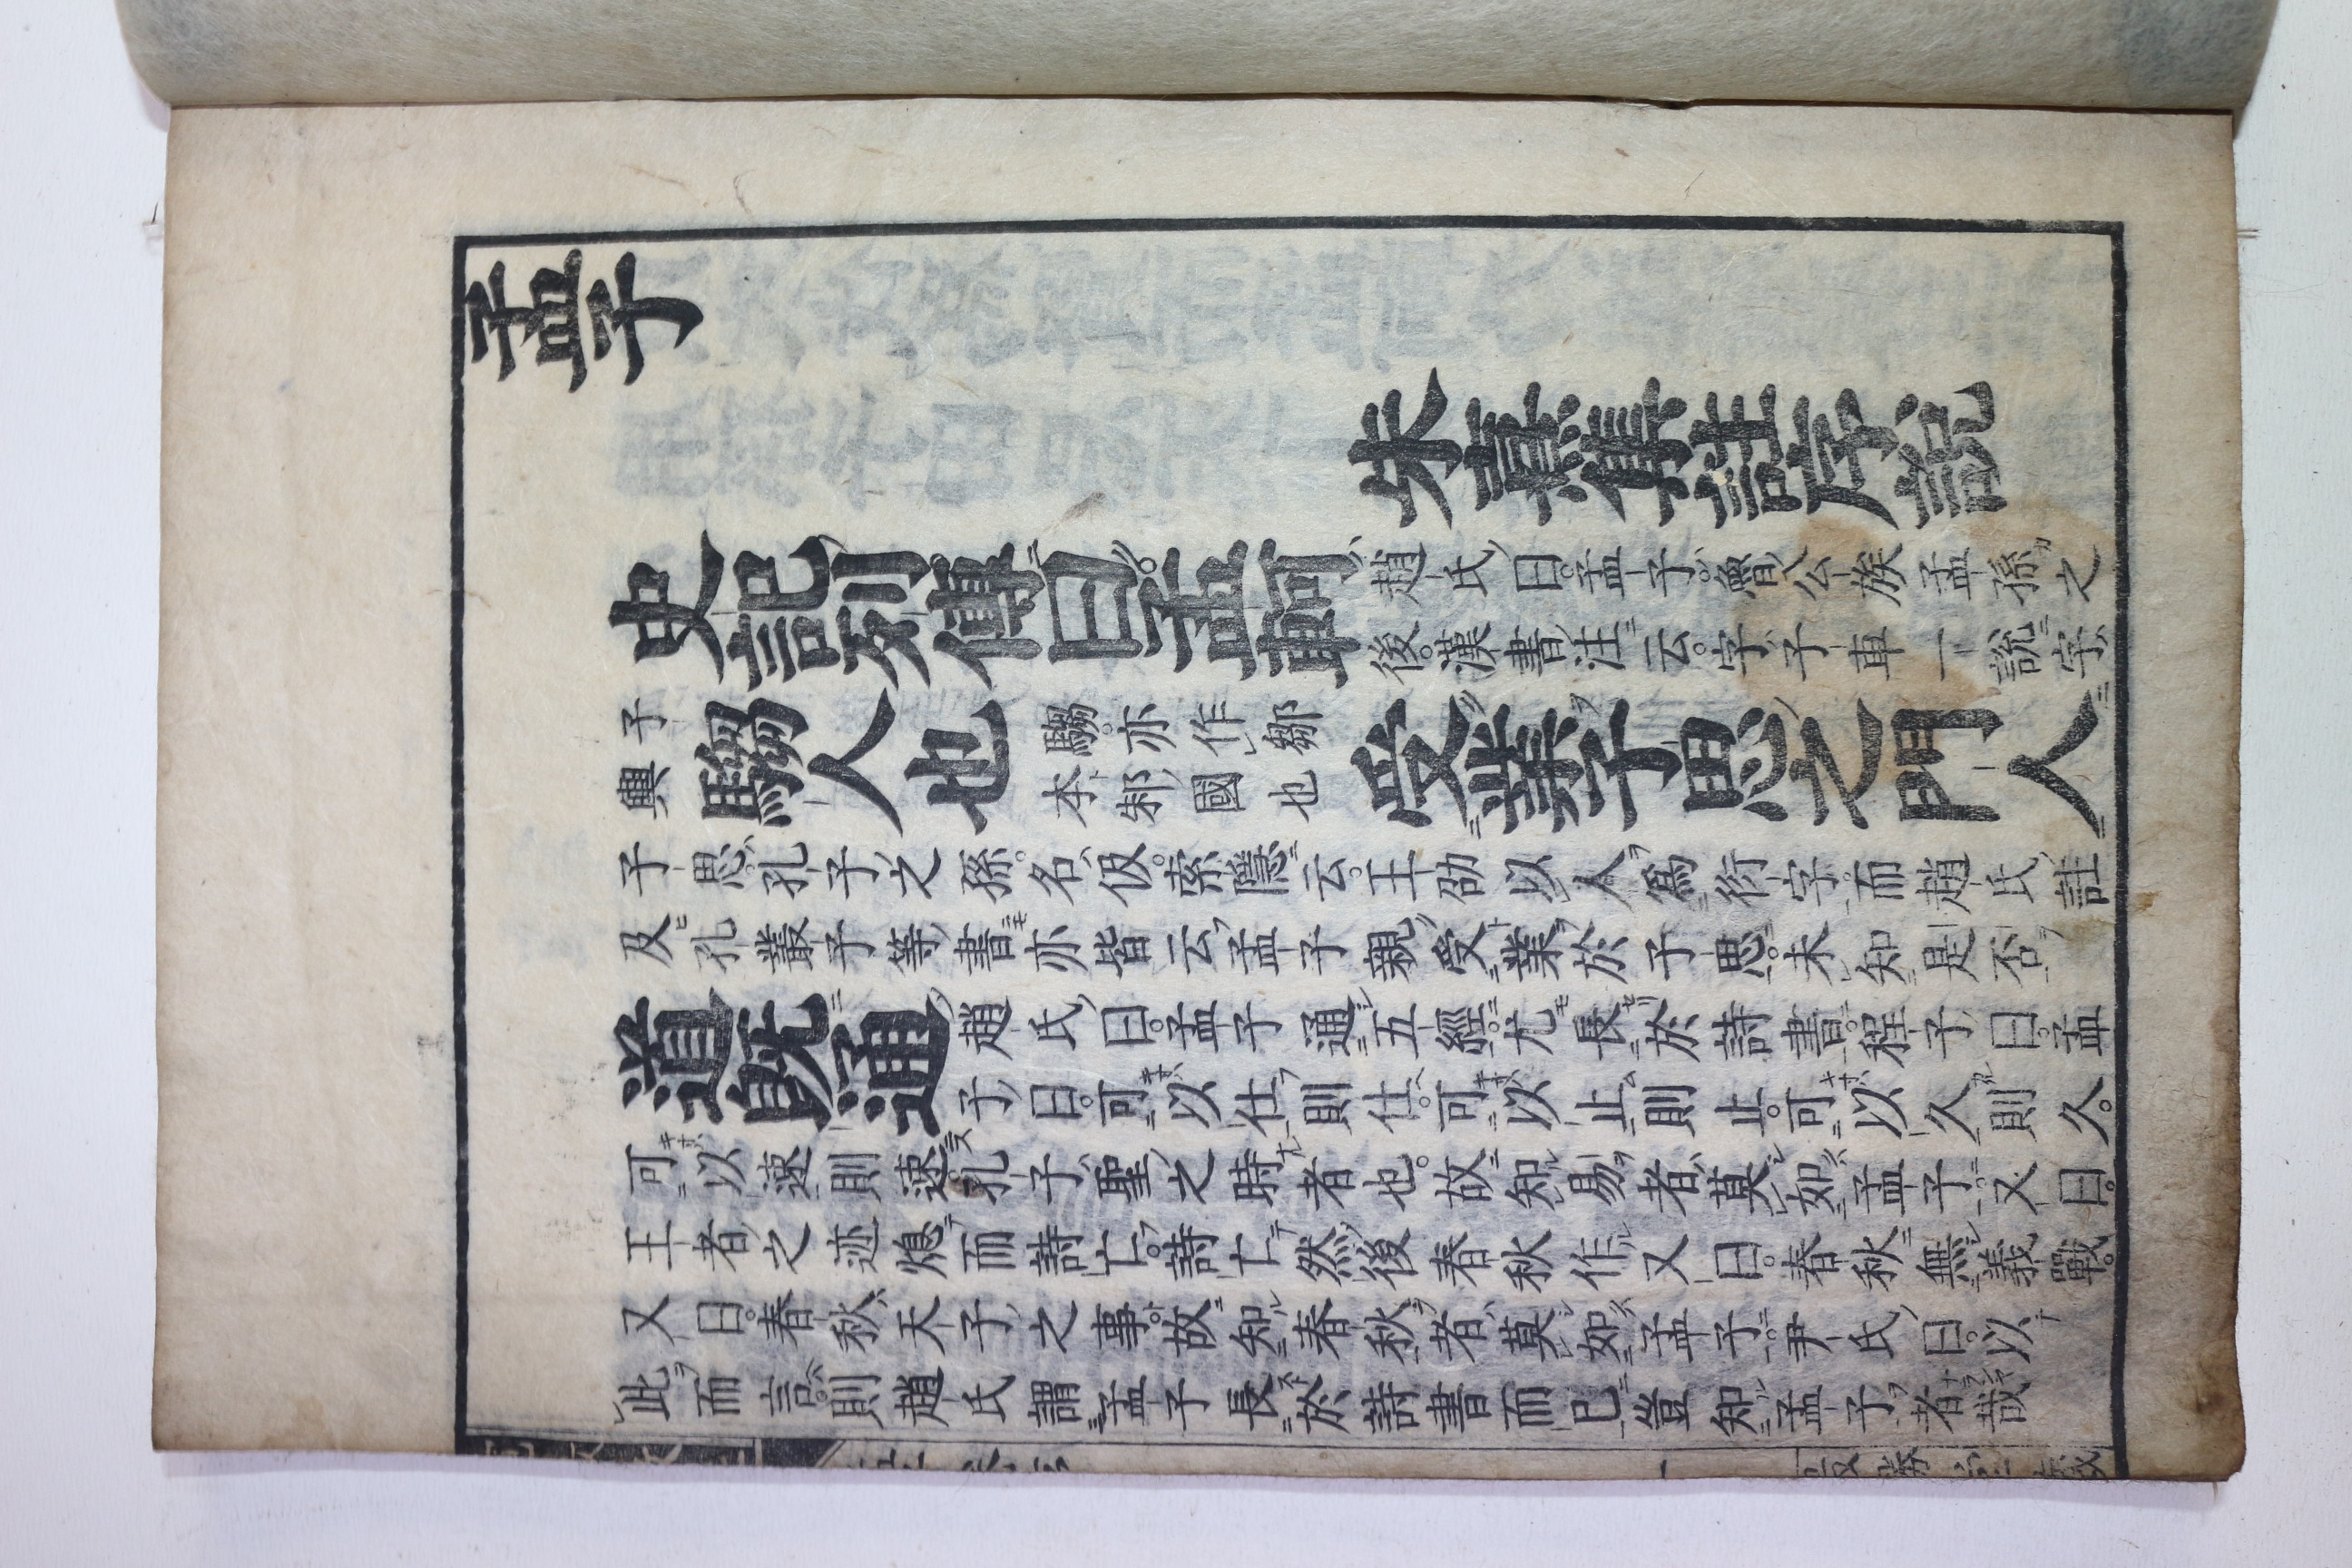 孟子
朱熹集註序說
史記列傳曰孟軻趙氏曰孟子魯公族孟孫之
後漢書注云字子車一說字
子輿騶人也騶亦作鄒本邾國也受業子思之門人
子思孔子之孫名伋索隱云王劭以人爲衍字而趙氏註
及孔叢子等書亦皆云孟子親受業於子思未知是否
道旣通趙氏曰孟子通五經尤長於詩書程子曰孟
子曰可以仕則仕可以止則止可以久則久
可以速則速孔子聖之時者也故知易者莫如孟子又曰
王者之迹熄而詩亡詩亡然後春秋作又曰春秋無義戰
又曰春秋天子之事故知春秋者莫如孟子尹氏曰以
此而言則趙氏謂孟子長於詩書而已豈知孟子者哉